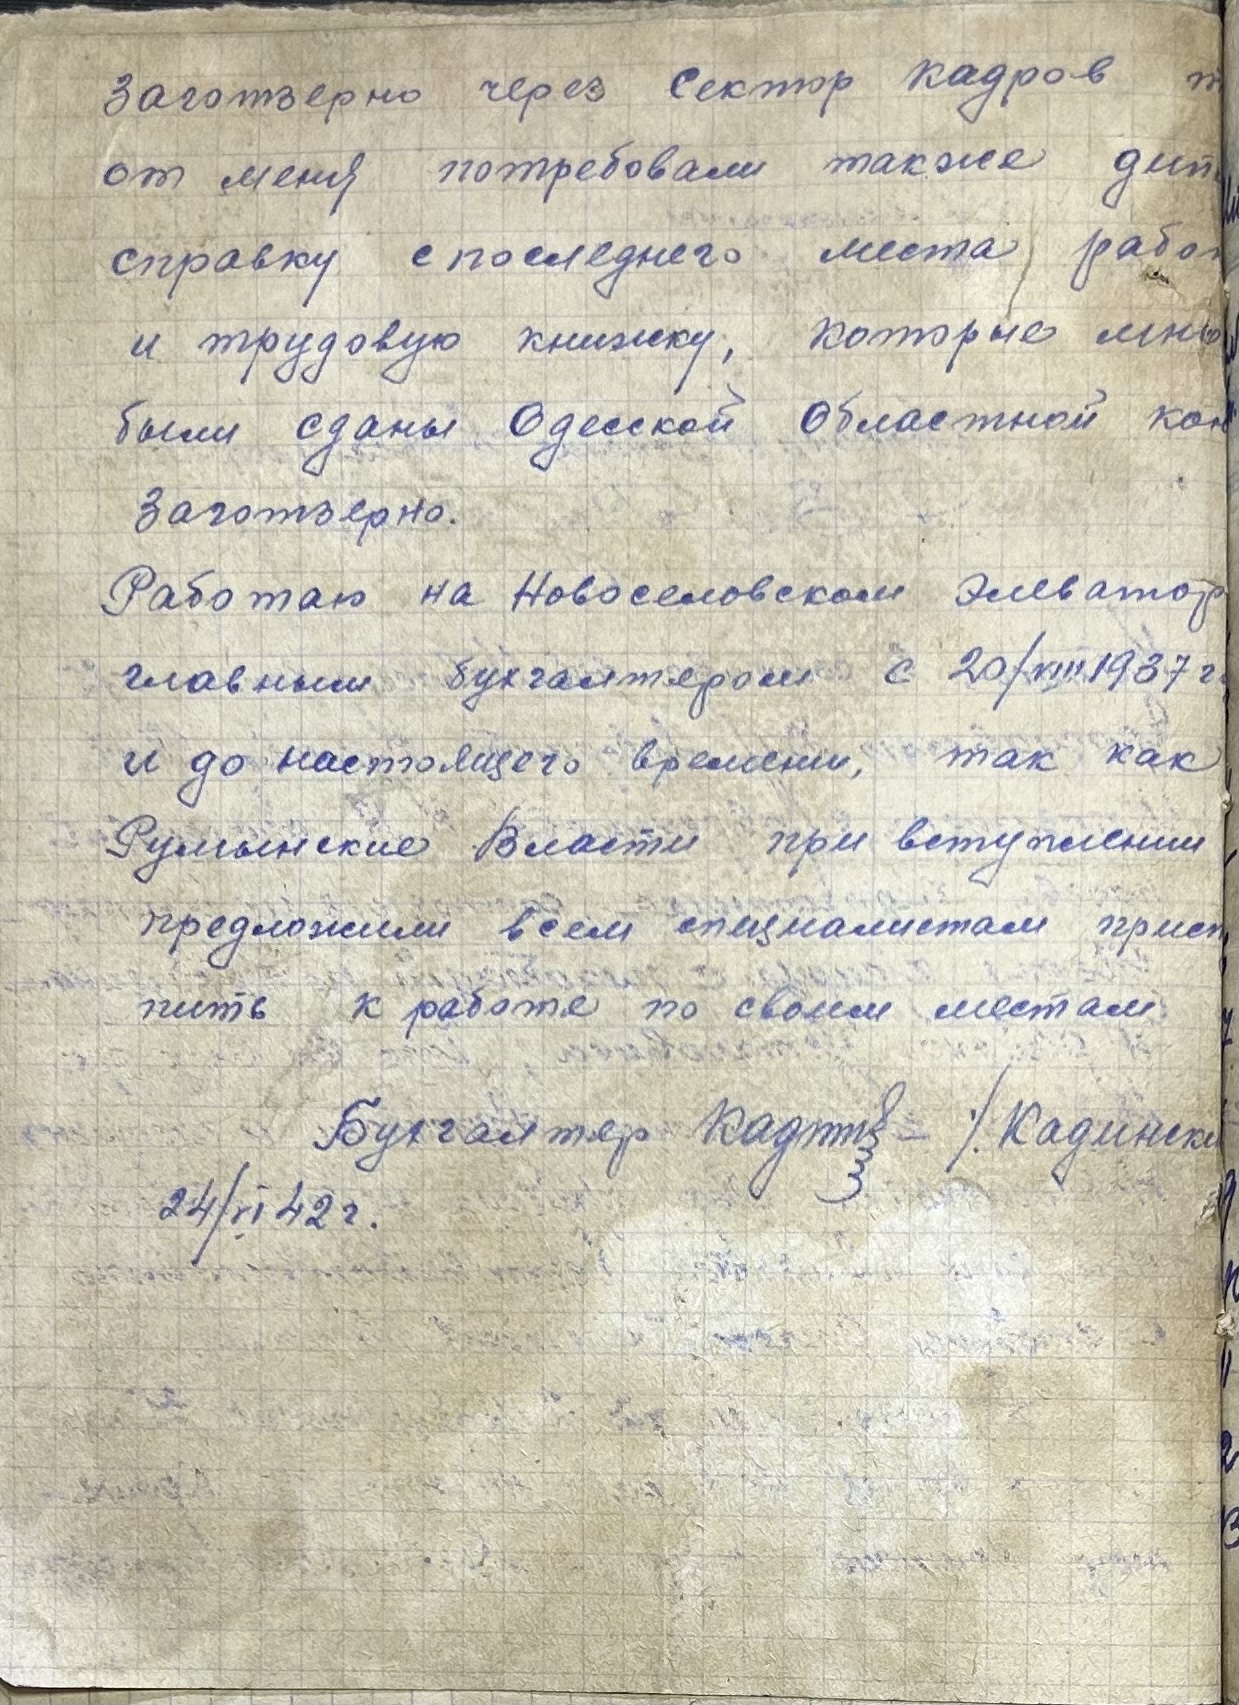 Заготзерно через Сектор кадров т
от меня потребовали также дип
справку с последнего места работ
и трудовую книжку, которые мною
были сданы Одесской Областной кон
Заготзерно.
Работаю на Новоселовском Элеватор
главным бухгалтером с 20/VIII 1937 г.
и до настоящего времени, так как
Румынские Власти при вступлении
предложили всем специалистам прист
пить к работе по своим местам
Бухгалтер /. Кадински
24/VI 42 г.